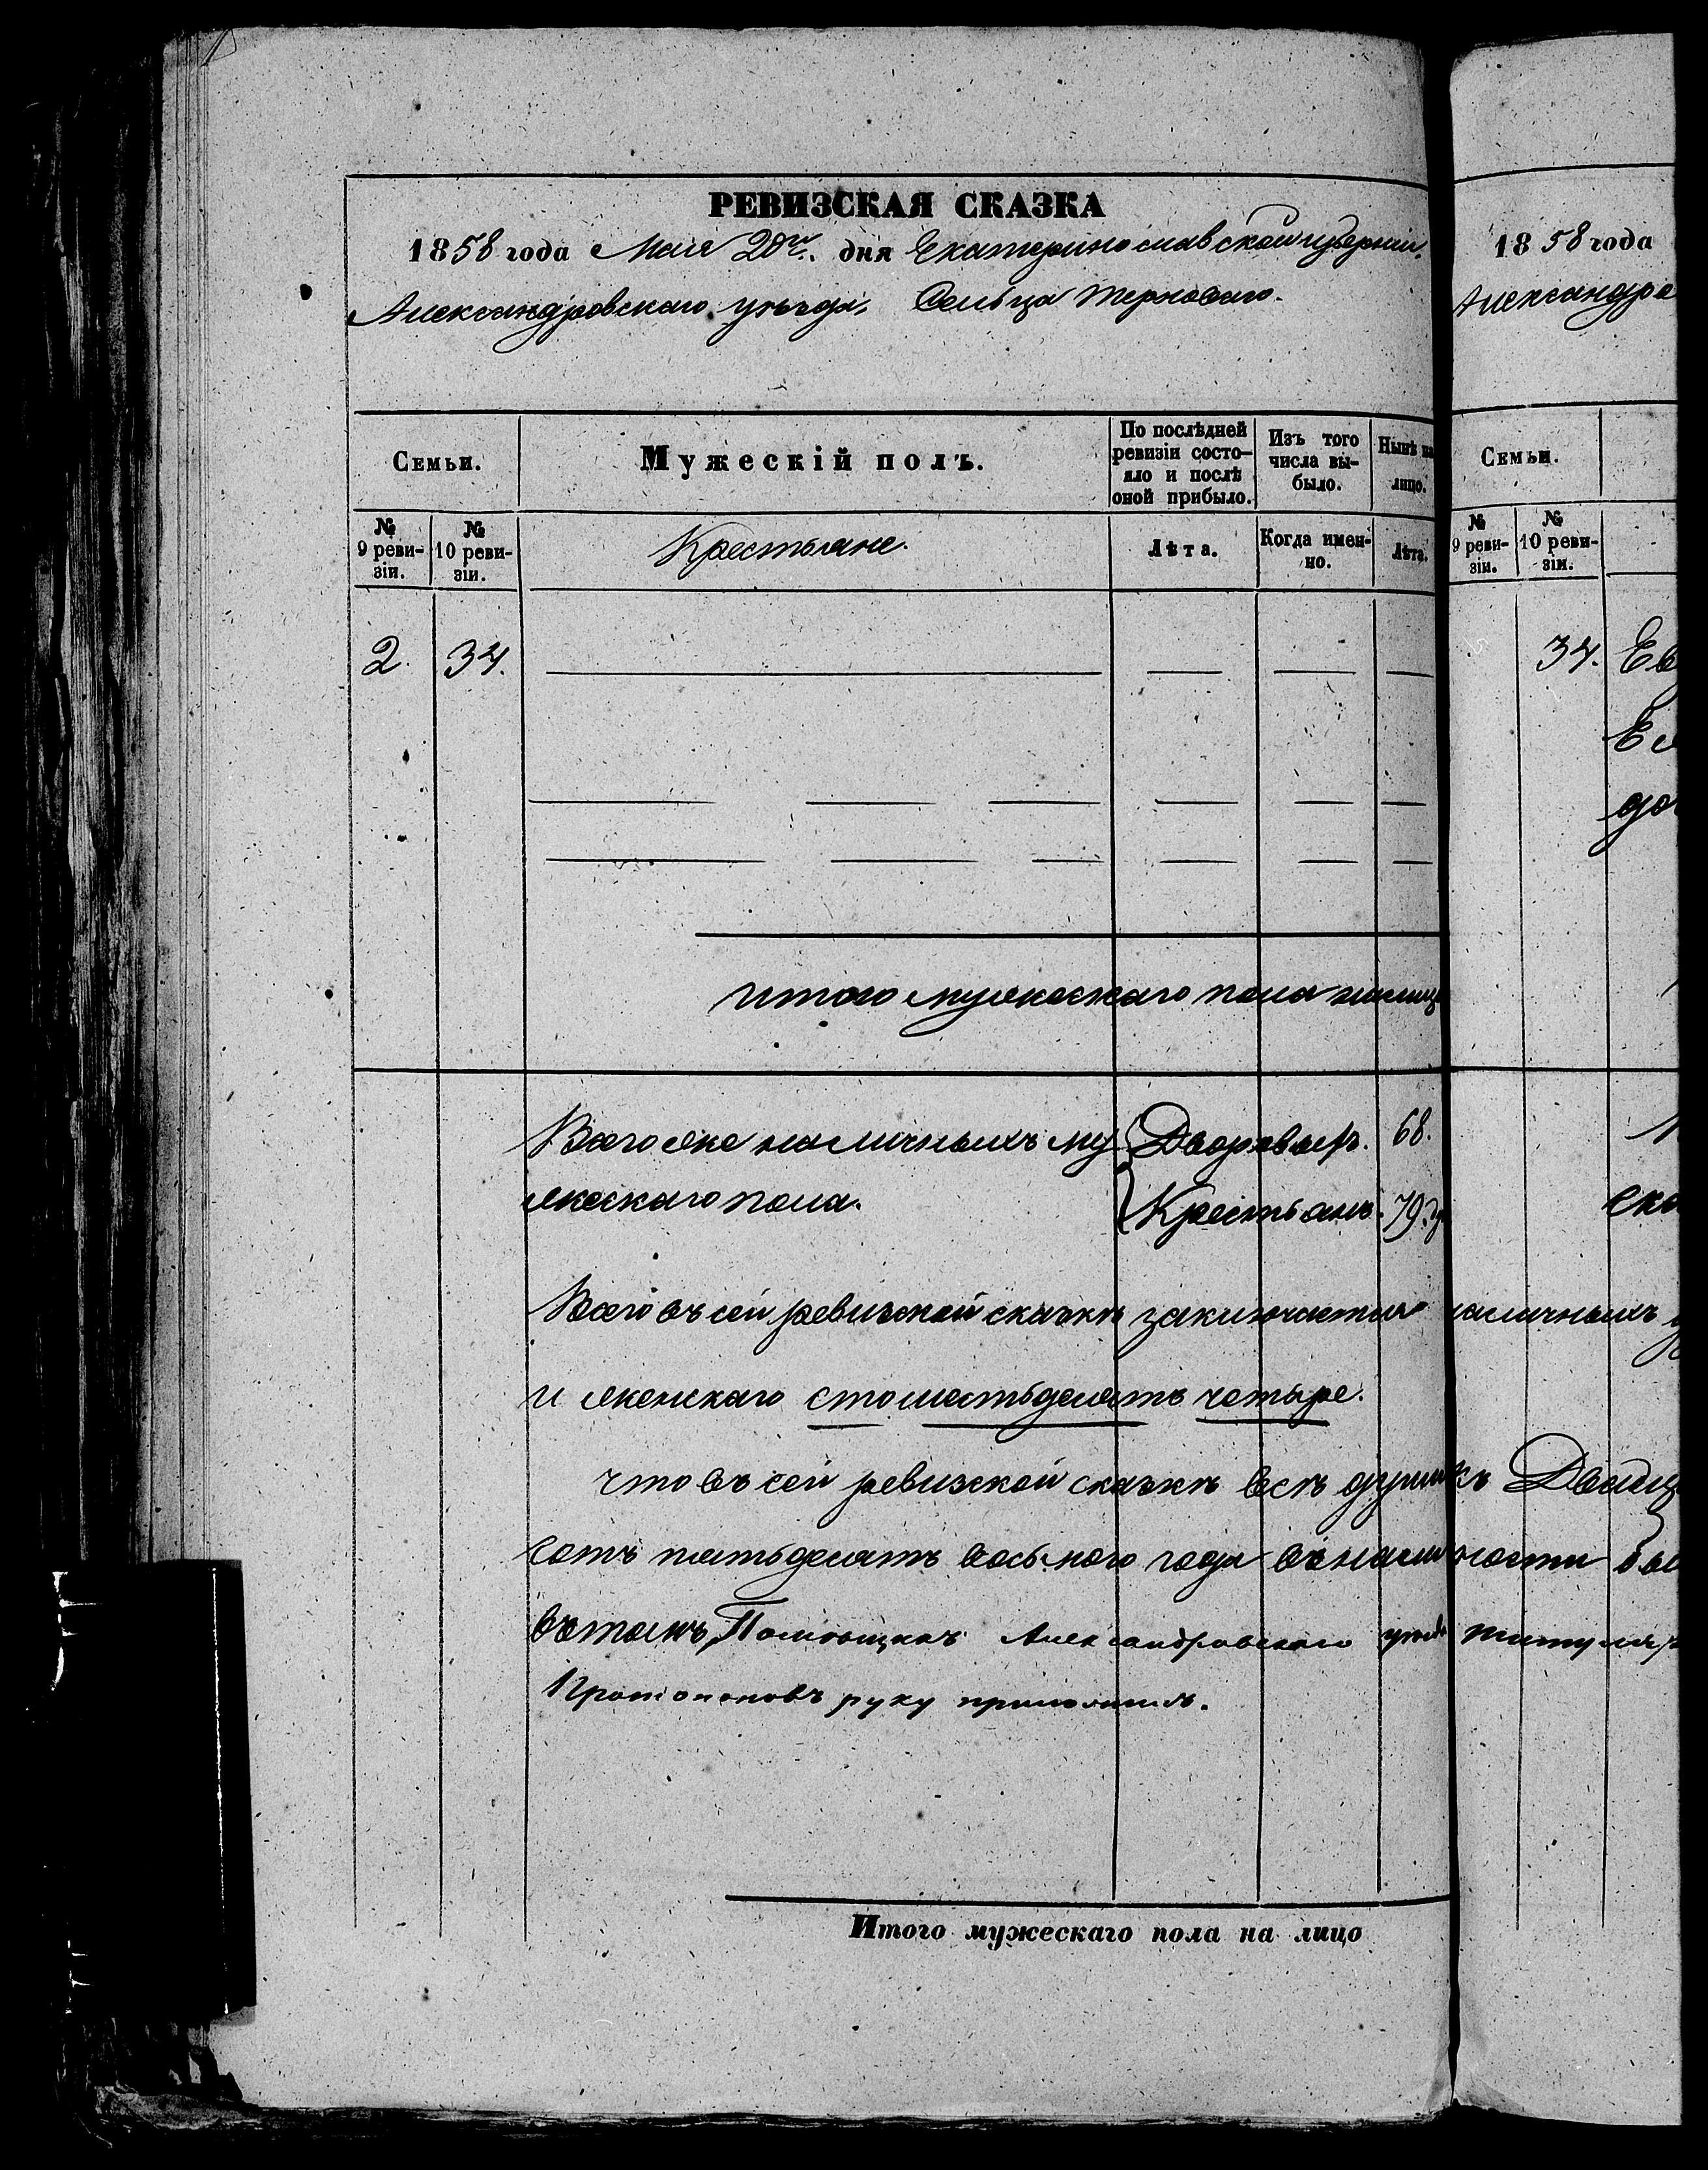 РЕВИЗСКАЯ СКАЗКА
1858 года Мая 20го. дня Екатеринославской губерніи.
Александровскаго уѣзда, Сельца Терноваго.
Семьи.
Мужескій полъ.
По послѣдней ревизіи состояло и послѣ оной прибыло.
Изъ того числа выбыло.
Нынѣ на лицо.
№ 9 ревизіи.
№ 10 ревизіи.
Крестьяне.
Лѣта.
Когда именно.
Лѣта.
2. 34.
итого мужескаго пола налиц
Всего же наличныхъ му Дворовыхъ. 68.
жескаго пола. Крестьянъ. 79.
Всего въ сей ревизской сказкѣ заключается наличныхъ
и женскаго сто шестьдесятъ четыре.
что въ сей ревизской сказкѣ всѣ душ къ Двадц
сотъ пятьдесятъ восьмого года въ налич ности бы
въ томъ, Помѣщикъ Александровскаго уѣзда титуляр
Протопоповъ руку приложилъ.
Итого мужескаго пола на лицо
1858 года
Александро
Семьи.
№ 9 ревизіи.
№ 10 ревизіи.
34. Ев
до
ска